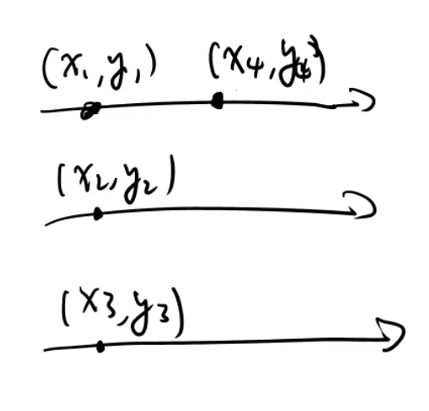 (x₁,y₁) (x₄,y₄)
(x₂,y₂)
(x3,y3)